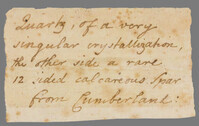 Quartz, of a very
singular crystallization,
the other side a rare
12 sided calcareous Spar
from Cumberland.